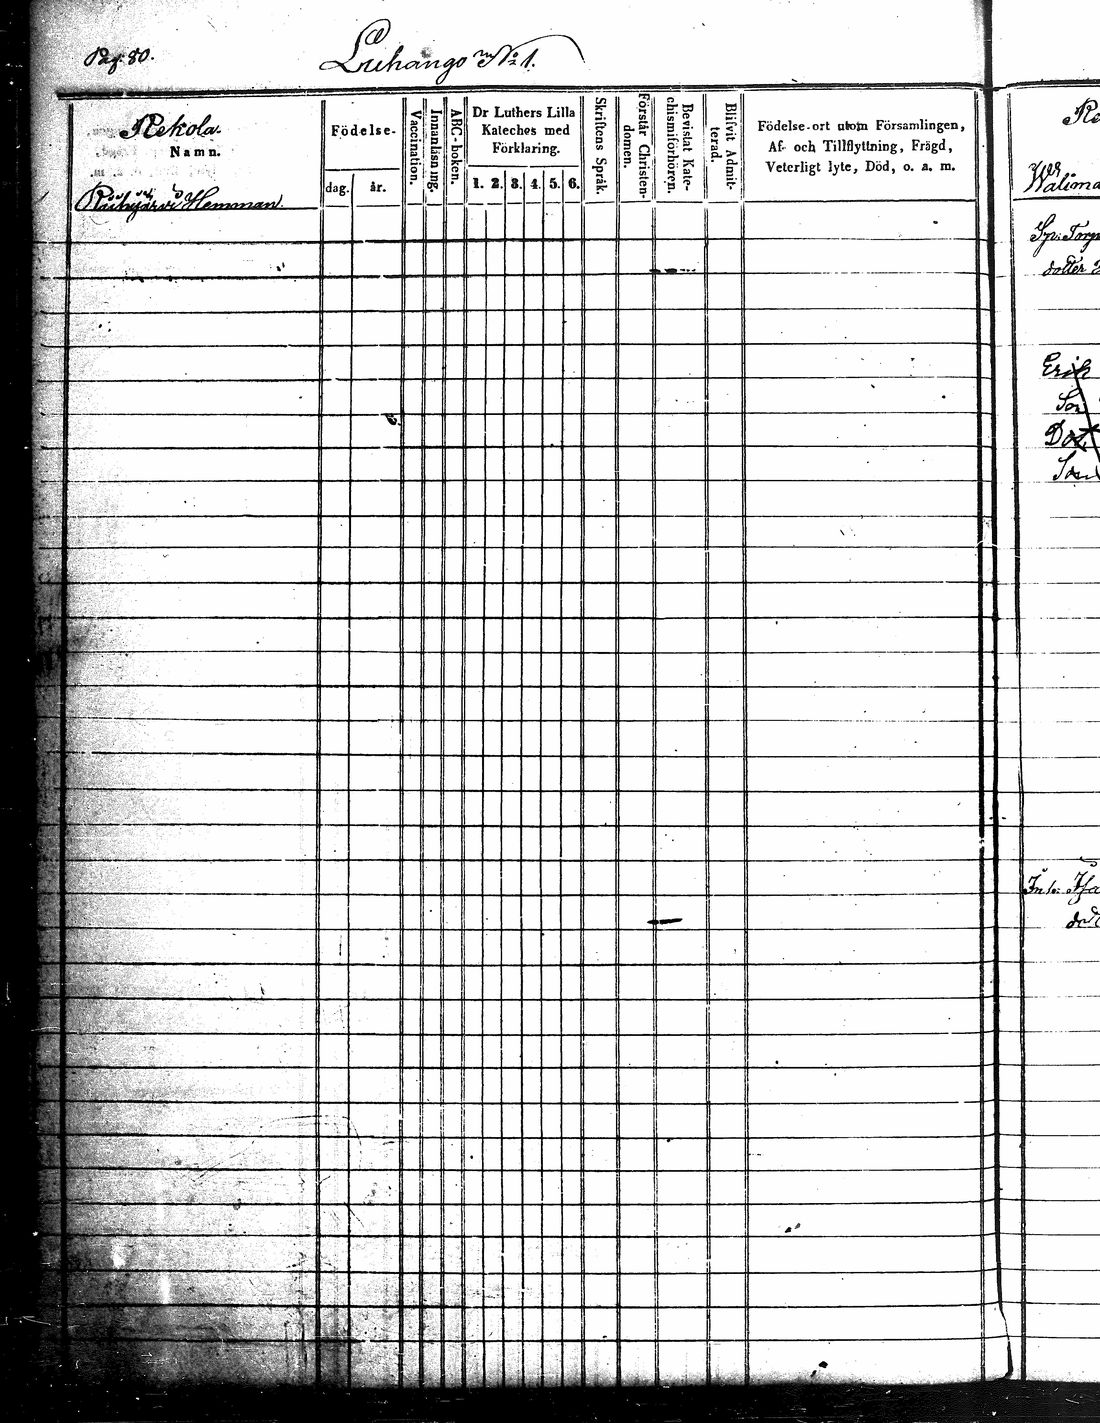 Pag. 80.
Luhango No 1.
Rekola.
Namn.
Hemman.
Födelse-
dag.
år.
Vaccination.
Innanläsning.
ABC-boken.
Dr Luthers Lilla
Kateches med
Förklaring.
1. 2. 3. 4. 5. 6.
Skriftens Språk.
Förstår Christen-
domen.
Bevistat Kate-
chismiförhören.
Blifvit Admit-
terad.
Födelse-ort utom Församlingen,
Af- och Tillflyttning, Frägd,
Veterligt lyte, Död, o. a. m.
Re
Walima
Sp. Torp
dotter
Erik
Son
Dot
Son
Inh.